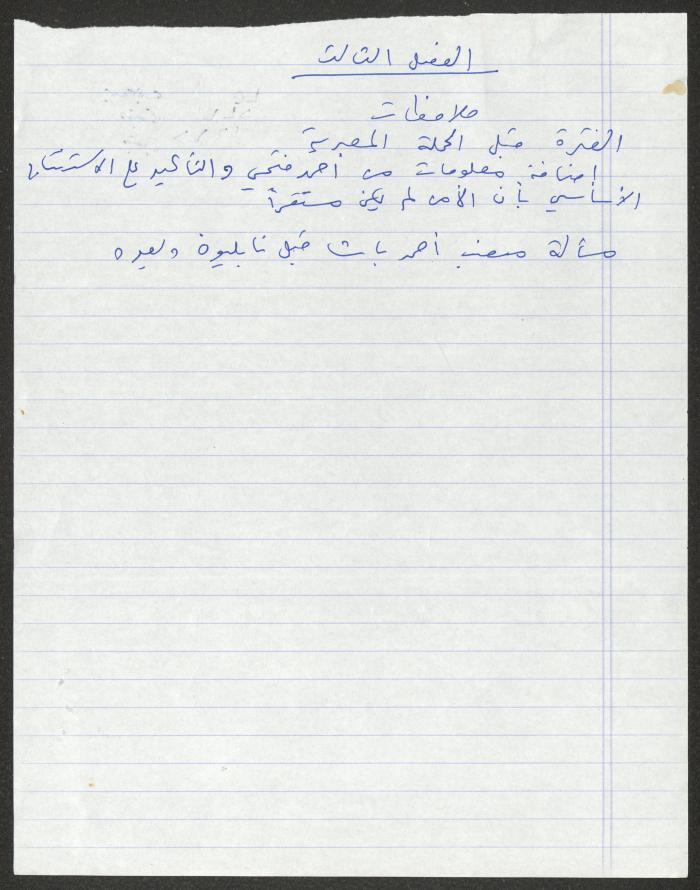 الفصل الثالث
ملاحظات
الفترة قبل الحملة المصرية
إضافة معلومات من أحمد فتحي والتأكيد على الاستنتاج
الأساسي بأن الأمن لم يكن مستقراً
مسألة منصب أحمد باشا قبل نابليون وبعده